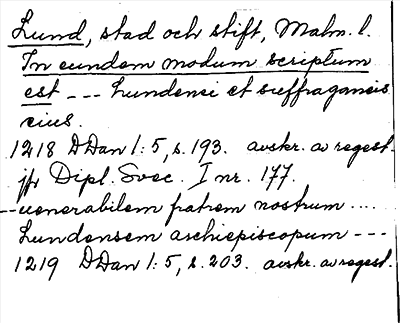 Lund, stad och stift, Malm. l.
In eundem modum scriptum
est --- Lundensi et suffraganeis
eius.
1218 DDan 1:5, s. 193. avskr. av regest.
jfr Dipl. Svec. I nr. 177.
-- uenerabilem patrem nostrum ....
Lundensem archiepiscopum ---
1219 DDan 1:5, s. 203. avskr. av regest.